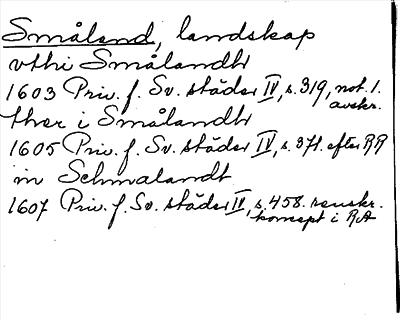 Småland, landskap
vthi Smålandh
1603 Priv. f. Sv. städer IV, s. 319, not. 1.
avskr.
ther i Smålandh
1605 Priv. f. Sv. städer IV, s. 371. efter RR
in Schmalandt
1607 Priv. f. Sv. städer IV, s. 458. renskr.
koncept i RA